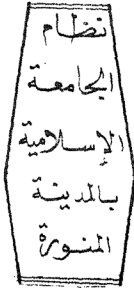 نظام
الجامعة
الإسلامية
بالمدينة
المنورة